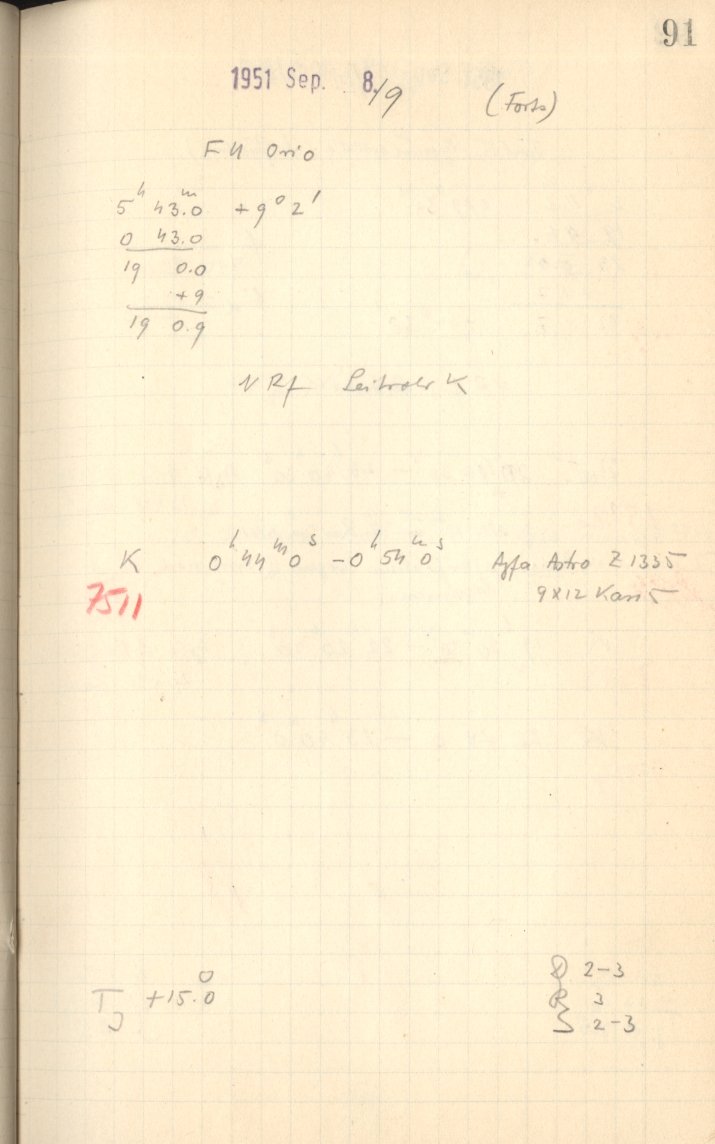 91
1951 Sep. 8./9 (Forts)
FU Orio
5ʰ 43.0ᵐ +9° 2'
0 43.0
19 0.0
+9
19 0.9
N Rf Leitrohr K
K 0ʰ44ᵐ0ˢ – 0ʰ54ᵐ0ˢ Agfa Astro Z 1335
7511 9x12 Kass 5
D 2-3
T_J +15.°0 R 3
S 2-3